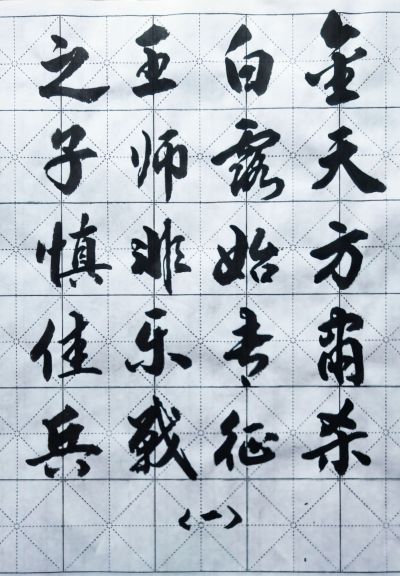 金天方肃杀
白露始专征
王师非乐戰
之子慎佳兵
(一)